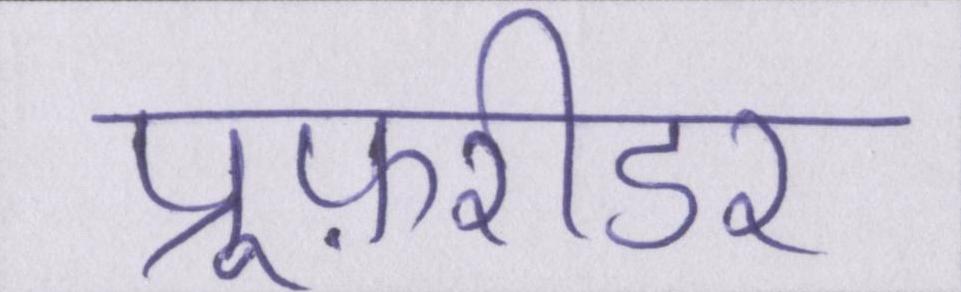 प्रूफ़रीडर